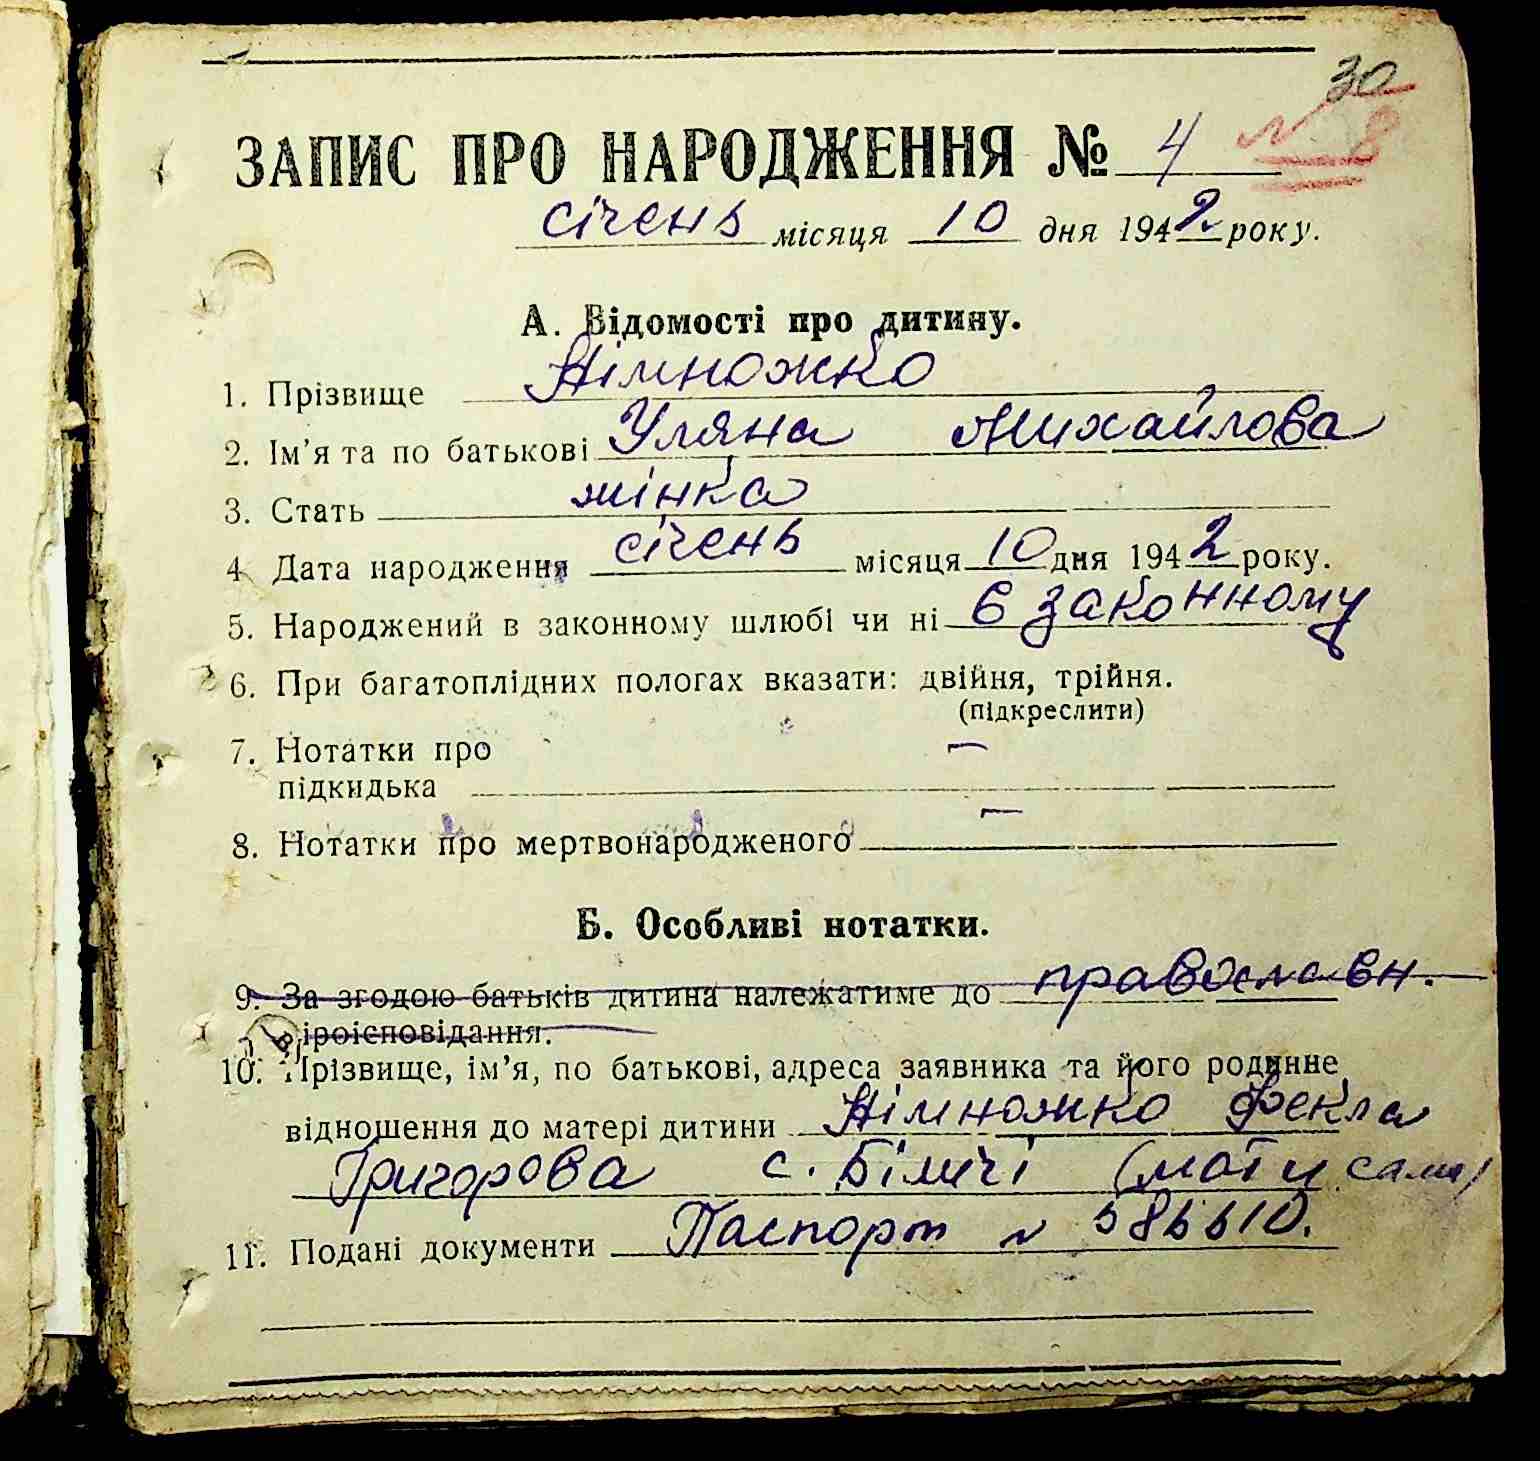 30
ЗАПИС ПРО НАРОДЖЕННЯ № 4 N 8
січень місяця 10 дня 1942 року.
А. Відомості про дитину.
1. Прізвище Німножко
2. Ім'я та по батькові Уляна Михайлова
3. Стать жінка
4. Дата народження січень місяця 10 дня 1942 року.
5. Народжений в законному шлюбі чи ні в законному
6. При багатоплідних пологах вказати: двійня, трійня.
(підкреслити)
7. Нотатки про –
підкидька
8. Нотатки про мертвонародженого –
Б. Особливі нотатки.
9. За згодою батьків дитина належатиме до православн.
віроісповідання.
10. Прізвище, ім'я, по батькові, адреса заявника та його родинне
відношення до матері дитини Німножко Фекла
Григорова с. Біличі (мати сама)
11. Подані документи Паспорт N